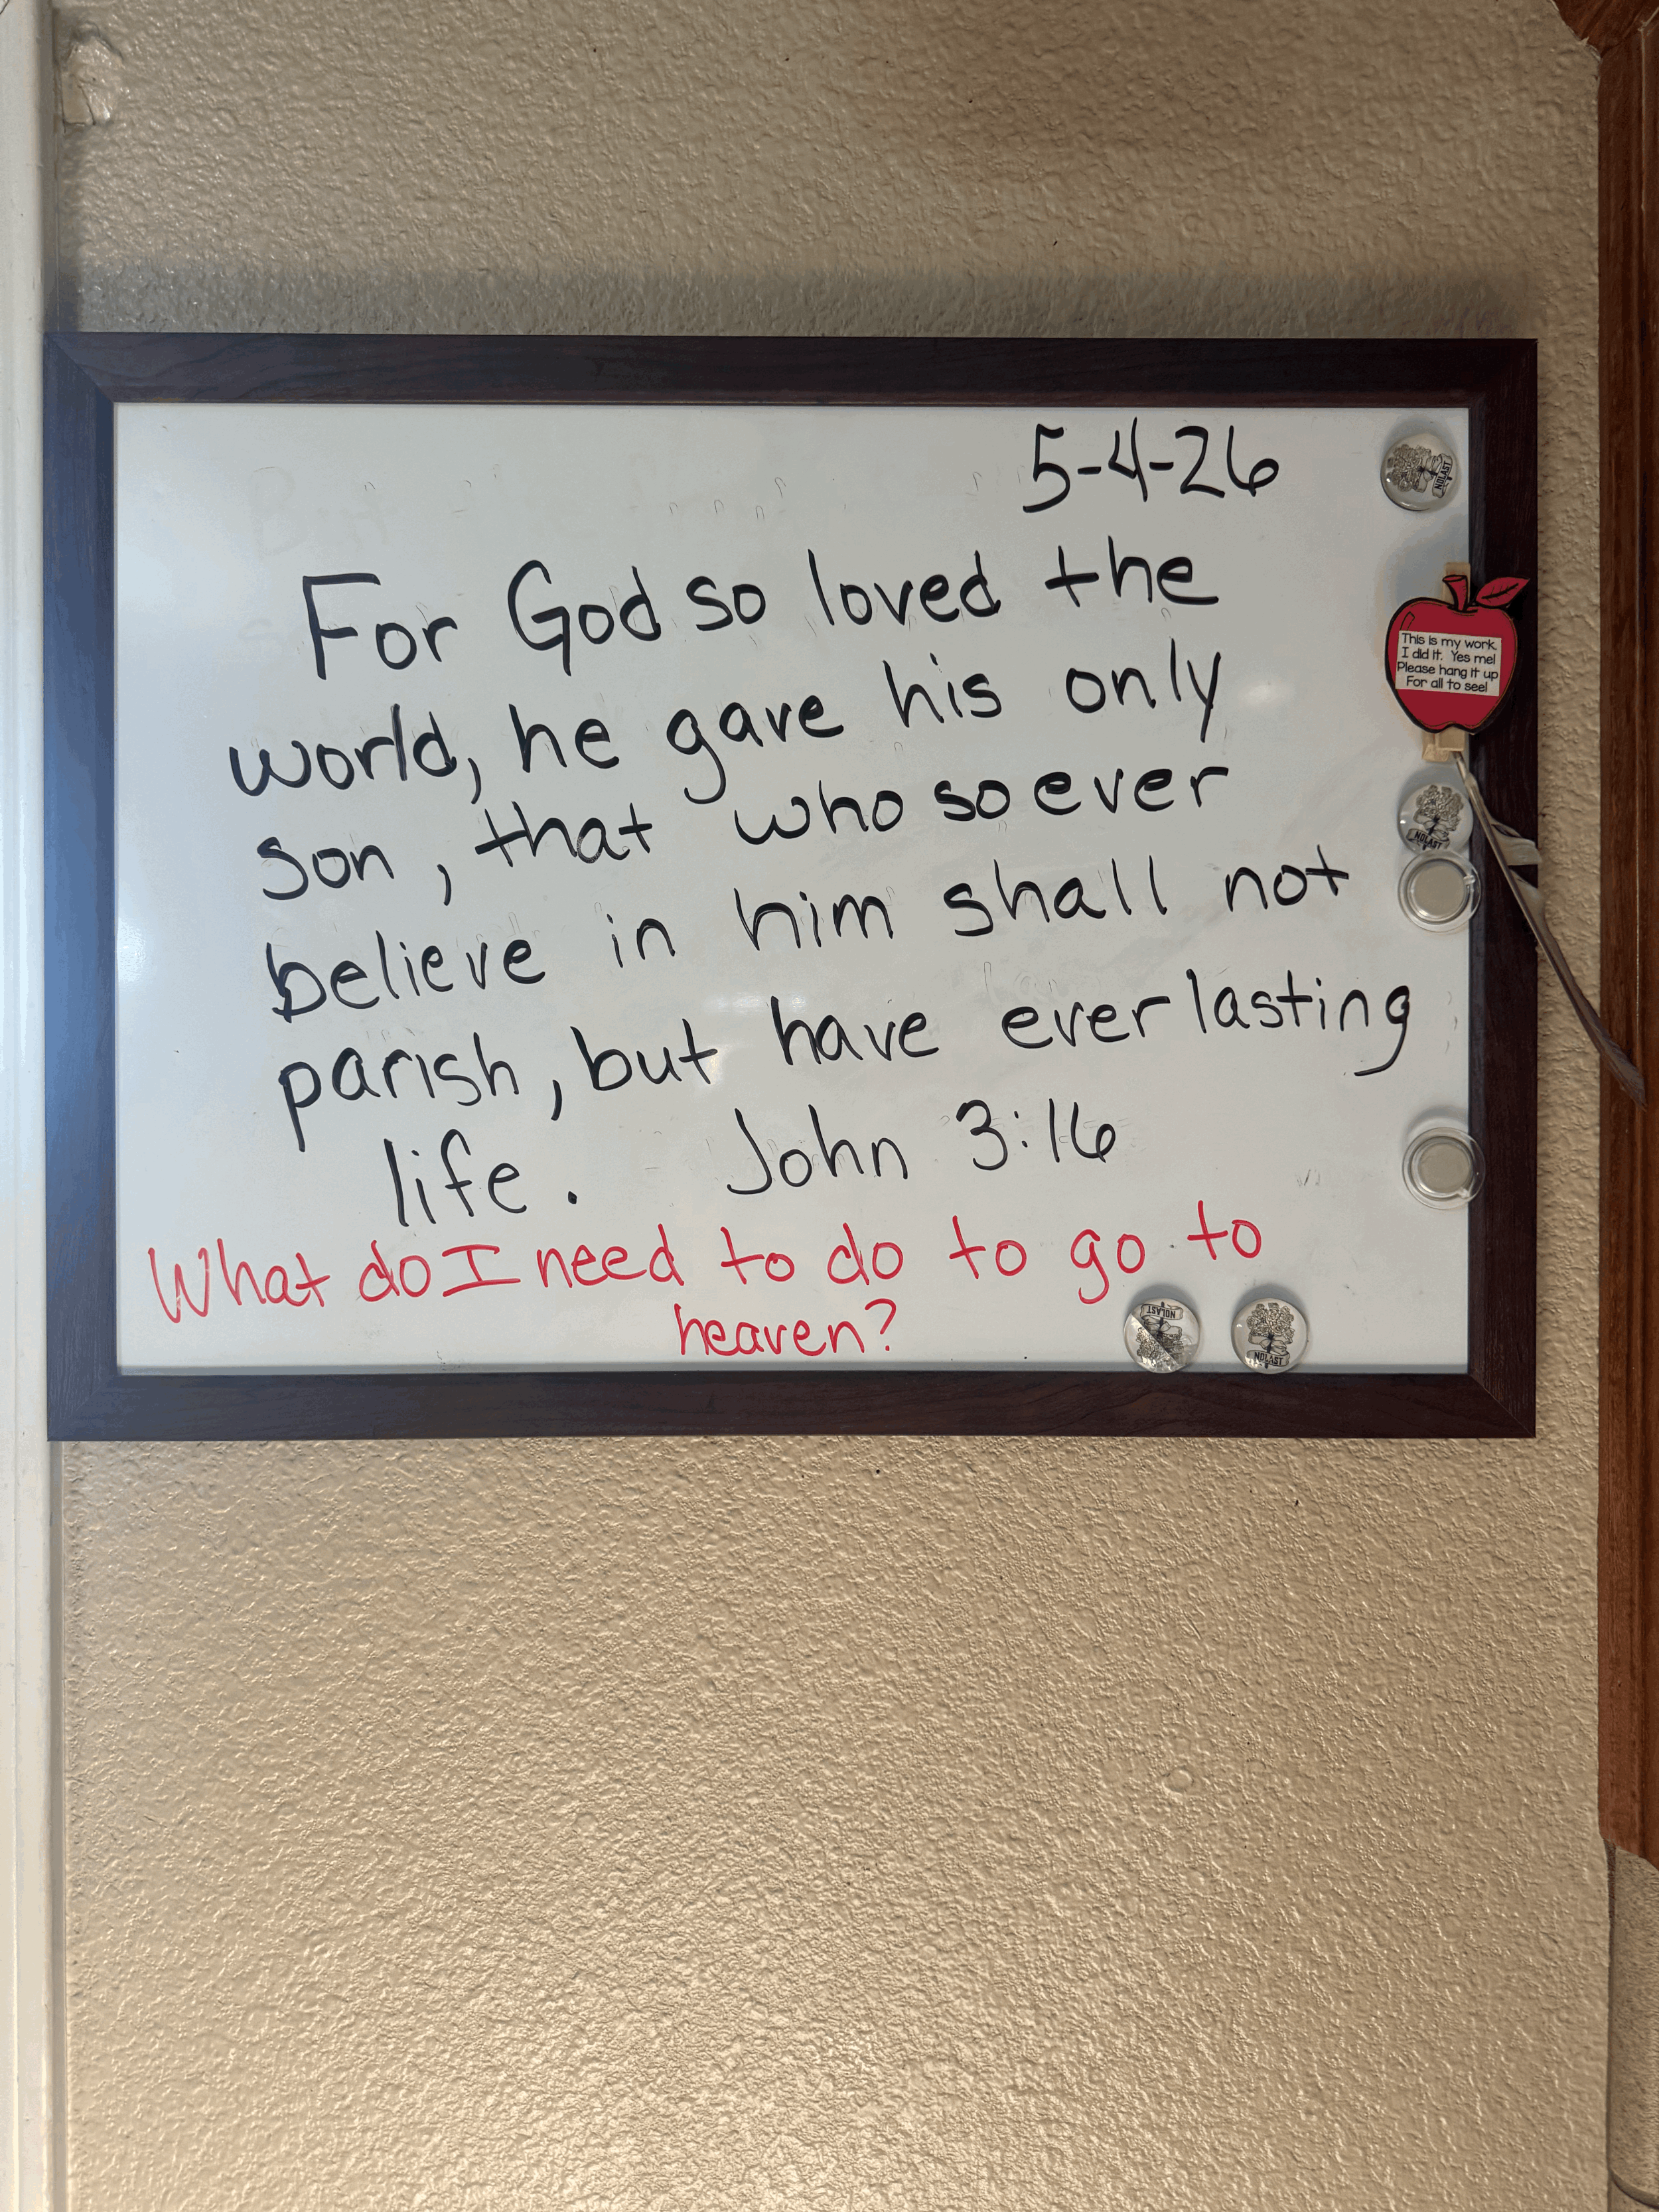 5-4-26
For God so loved the
world, he gave his only
son, that who so ever
believe in him shall not
parish, but have ever lasting
life. John 3:16
What do I need to do to go to
heaven?
NOLAST
This is my work.
I did it. Yes me!
Please hang it up
For all to see!
NOLAST
NOLAST
NOLAST